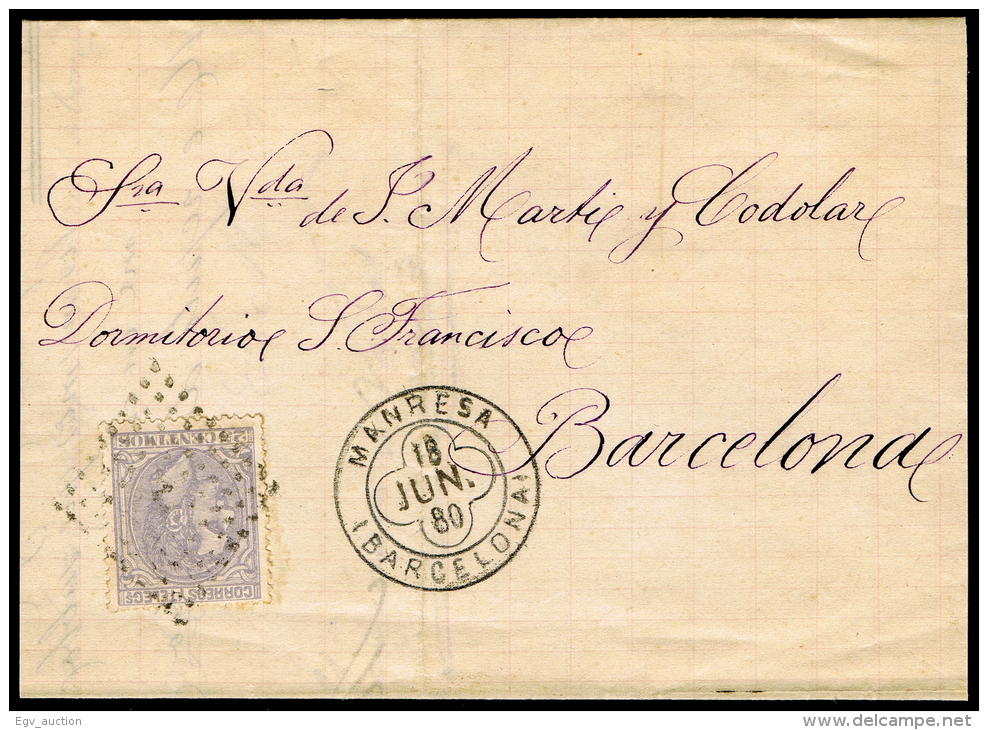 Sra Vda de J. Marti y Codolar
Dormitorio S. Francisco
Barcelona
MANRESA
18
JUN.
80
(BARCELONA)
CORREOS Y TELEGS
25 CENTIMOS
Egv_auction
delcampe.net